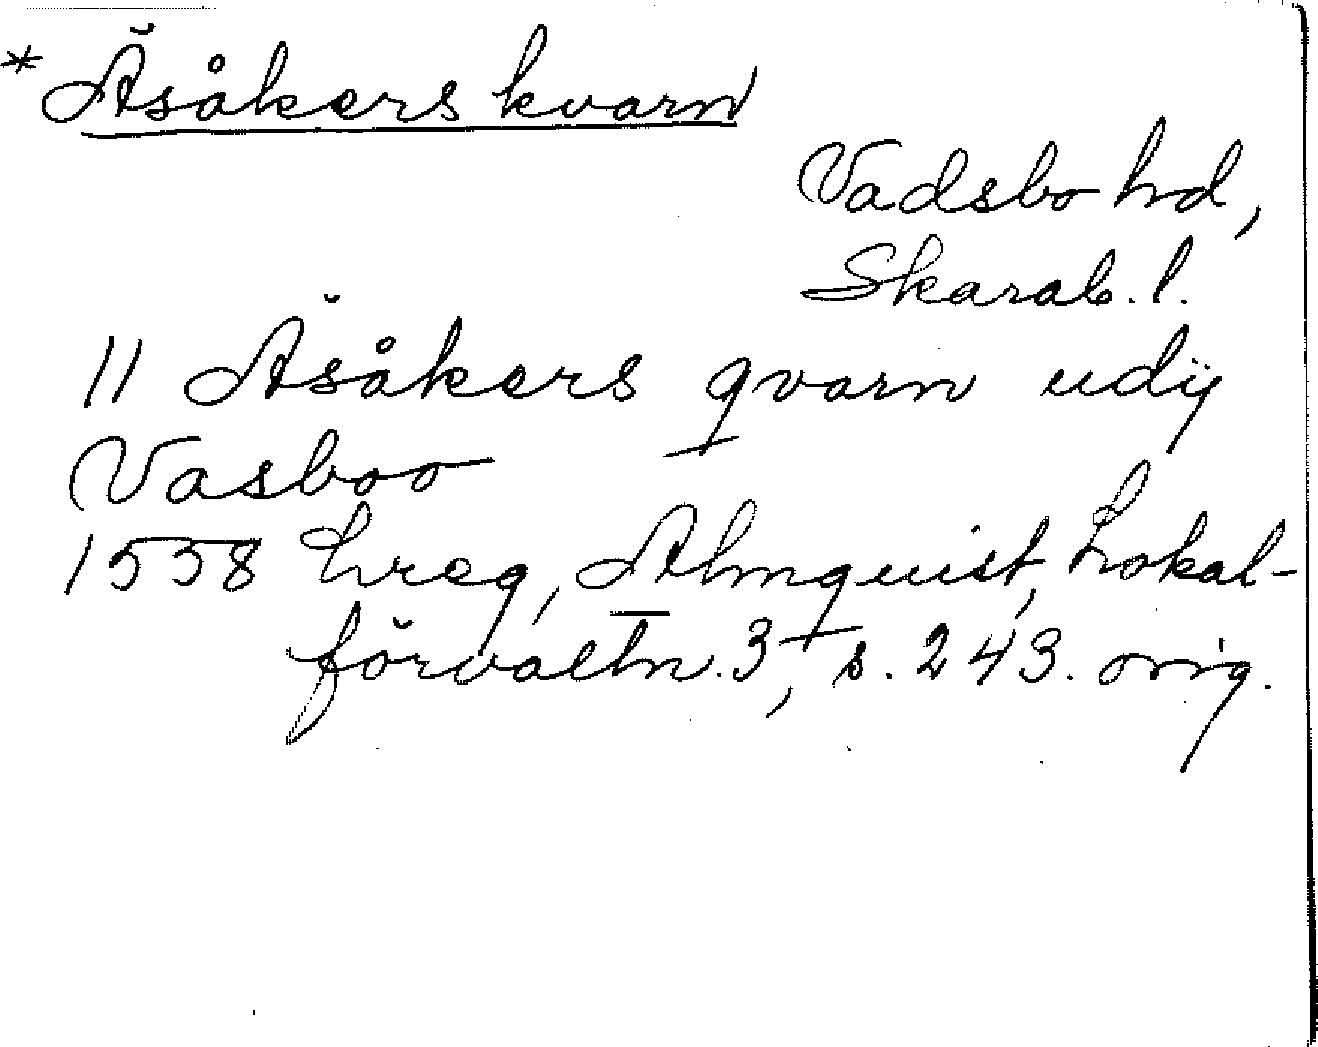 * Äsåkers kvarn
Vadsbo hd,
Skarab. l.
11 Äsåkers qvarn udÿ
Vasboo
1558 hreg, Almquist, Lokal-
förvaltn. 3, s. 243. orig.